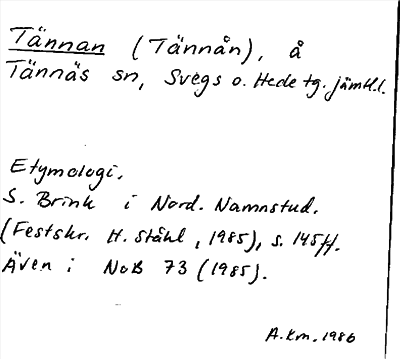 Tännan (Tännån), å
Tännäs sn, Svegs o. Hede tg. jämtl.l.
Etymologi.
S. Brink i Nord. Namnstud.
(Festskr. H. Ståhl, 1985), s. 145ff.
Även i NoB 73 (1985).
A.Km. 1986